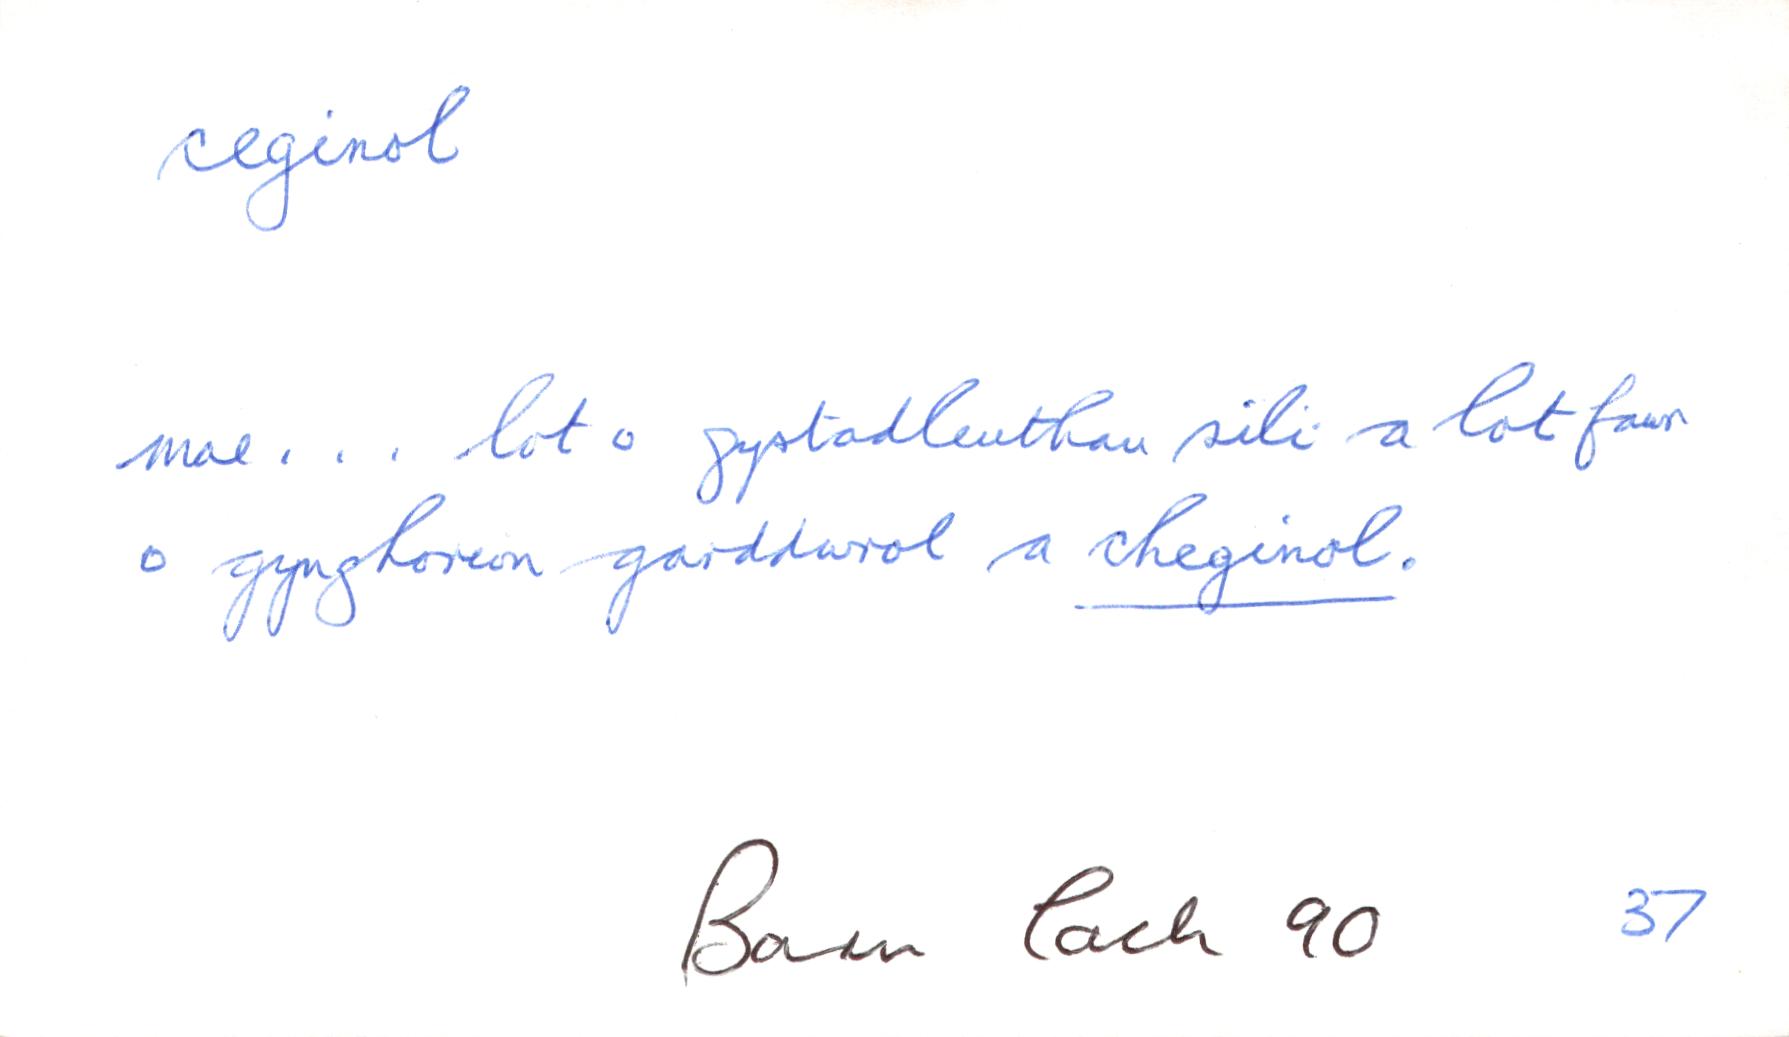 ceginol
mae . . . lot o gystadleuthau sili a lot fawr
o gynghorion garddwrol a cheginol.
Barn Tach 90 37